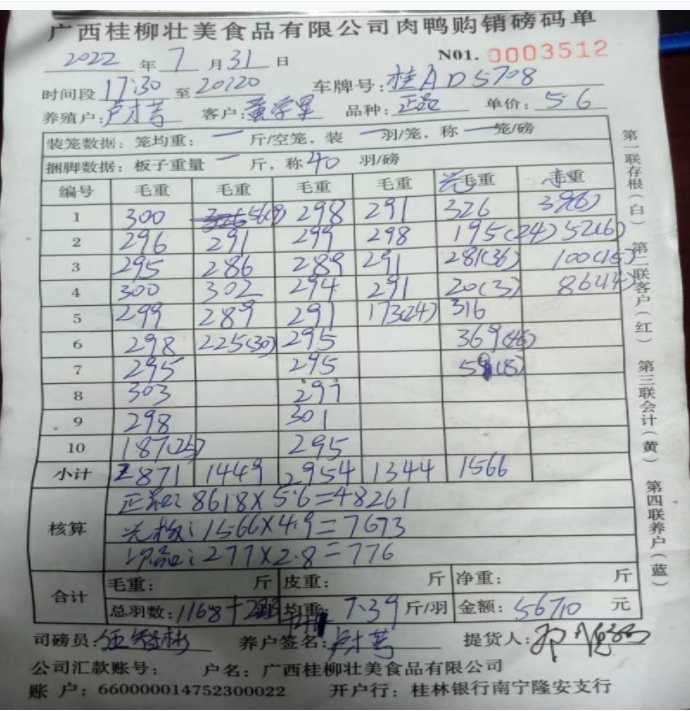 广西桂柳壮美食品有限公司肉鸭购销磅码单
2022 年 7 月 31 日 N01. 0003512
时间段 17:30 至 20:20 车牌号: 桂AD5708
养殖户: 客户: 黄学军 品种: 正品 单价: 5.6
装笼数据: 笼均重: 一 斤/空笼, 装 一 羽/笼, 称 一 笼/磅
捆脚数据: 板子重量 一 斤, 称 40 羽/磅
编号 毛重 毛重 毛重 毛重 毛重 毛重
1 300 298 291 326 39(6)
2 296 291 299 298 195(24) 52(6)
3 295 286 289 291 281(36) 100(15)
4 300 302 294 291 20(3) 86(14)
5 299 289 291 173(24) 316
6 298 225(30) 295 369(46)
7 295 295
8 303 297
9 298 301
10 187(25) 295
小计 2871 1449 2954 1344 1566
核算 正品: 8618×5.6=48261
1566×4.9=7673
277×2.8=776
合计 毛重: 斤 皮重: 斤 净重: 斤
总羽数: 1168+ 羽 均重: 7.39 斤/羽 金额: 56710 元
司磅员: 养户签名: 提货人:
公司汇款账号: 户名: 广西桂柳壮美食品有限公司
账 户: 660000014752300022 开户行: 桂林银行南宁隆安支行
第一联存根(白) 第二联客户(红) 第三联会计(黄) 第四联养户(蓝)